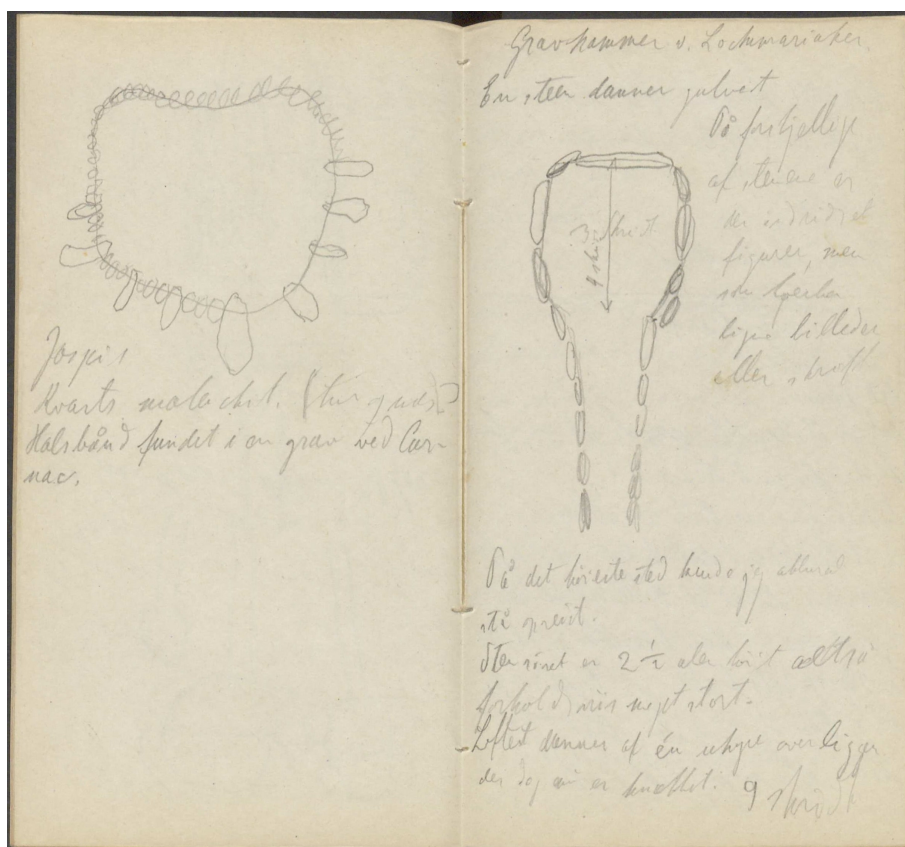 Jaspis
Kvarts malachit.
Halsbånd fundet i en grav ved Car-
nac.
Gravkammer v. Lochmariaker.
En steen danner gulvet
På forskjellige
af stenene er
der indridset
figurer, men
som hverken
ligne billeder
eller skrift
3 skridt
9 skridt
På det høieste sted kunde jeg
stå opreist.
er 2 1/2 alen høit altså
forholdsviis meget stort.
Loftet dannes af én uhyre overligger
der er knækket. 9 skridt